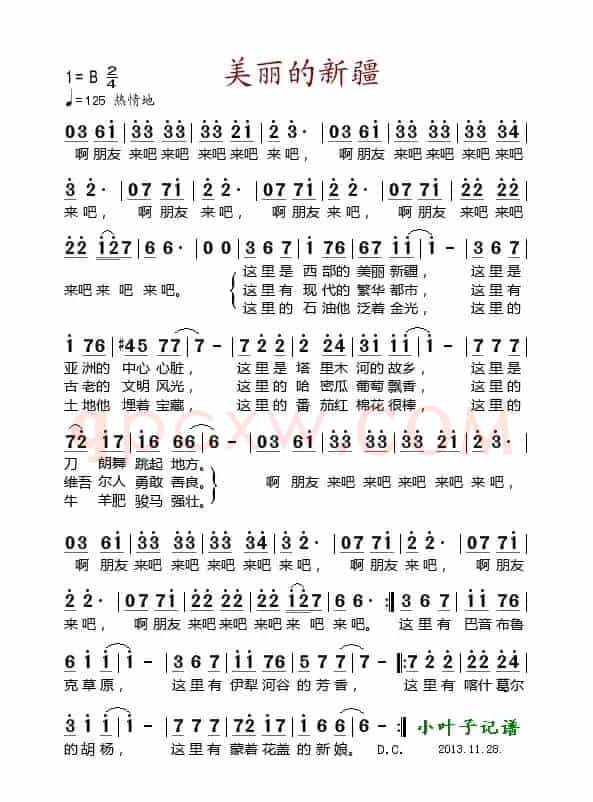 美丽的新疆
1=B 2/4
♩=125 热情地
03 61|33 33|33 21|2 3·|03 61|33 33|33 33|33 34|
啊朋友 来吧 来吧 来吧 来吧 来吧, 啊朋友 来吧 来吧 来吧 来吧 来吧 来吧
3 2·|07 71|2 2·|07 71|2 2·|07 71|22 22|22 22|
来吧, 啊朋友 来吧, 啊朋友 来吧, 啊朋友 来吧 来吧 来吧 来吧
22 127|6 6·|0 0|3 6 7|1 76|67 11|1 -|3 6 7|
来吧来 吧 来吧。 这里是 西部的 美丽 新疆, 这里是
这里有 现代的 繁华 都市, 这里有
这里的 石油他 泛着 金光, 这里的
1 76|#45 77|7 -|7 22|2 24|3 23|1 -|7 22|
亚洲的 中心 心脏, 这里是 塔里木 河的故乡, 这里是
古老的 文明 风光, 这里的 哈密瓜 葡萄飘香, 这里的
土地他 埋着 宝藏, 这里的 番茄红 棉花很棒, 这里的
72 17|16 66|6 -|03 61|33 33|33 33|33 21|2 3·|
刀 朗舞 跳起 地方。
维吾 尔人 勇敢 善良。 啊 朋友 来吧 来吧 来吧 来吧 来吧,
牛 羊肥 骏马 强壮。
03 61|33 33|33 33|33 34|3 2·|07 71|2 2·|07 71|
啊 朋友 来吧 来吧 来吧 来吧 来吧, 啊 朋友 来吧, 啊朋友
2 2·|07 71|22 22|22 22|22 127|6 6·:|3 6 7|1 76|
来吧, 啊朋友 来吧 来吧 来吧 来吧 来 吧 来吧。 这里有 巴音布鲁
6 1|1 -|3 6 7|6 11|1 76|5 7 7|7 -|:7 22|2 24|
克草原, 这里有 伊犁河谷的芳香, 这里有 喀什葛尔
3 1|1 -|7 22|2 17|1 67|6 6|6 -:| 小叶子记谱
的胡杨, 这里有 蒙着花盖的新娘。 D.C. 2013.11.28.